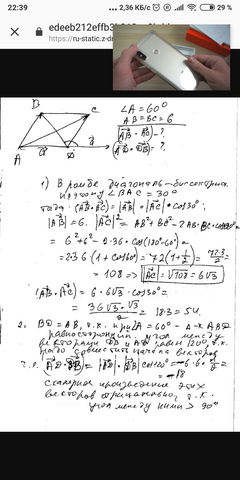 22:39
2,36 КБ/с
edeeb212effb3b1f3d6f...
https://ru-static.z-dn...
B
C
A
a
D
∠A = 60°
AB = BC = 6
(AB · AC) - ?
(AD · DB) - ?
1) В ромбе диагональ - биссектриса
поэтому ∠BAC = 30°
тогда (AB · AC) = |AB| · |AC| · cos30°
|AB| = 6. |AC|² = AB² + BC² - 2AB · BC · cos
= 6² + 6² - 2·36 · Cos(180°-60°) =
= 2·36 (1 + cos60°) = 72(1 + 1/2) = 72·3/2
= 108 ⇒ |AC| = √108 = 6√3
(AB · AC) = 6 · 6√3 · cos30° =
= 36√3 · √3 / 2 = 18·3 = 54.
2. BD = AB, т.к. при ∠A = 60° Δ-к ABD
равносторонний. Угол между
векторами DB и AD равен 120°, т.к.
надо совместить начала векторов
(AD · DB) = |AD| · |DB| cos120° = -6 · 6 · 1/2
= -18
скалярное произведение этих
векторов отрицательно, т.к.
угол между ними > 90°